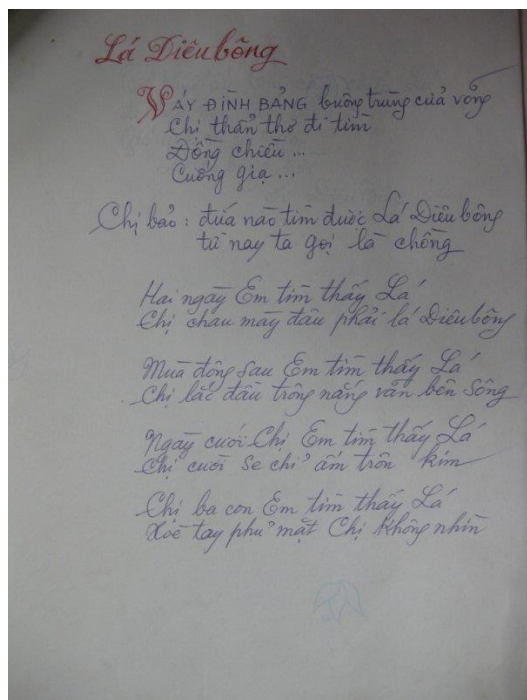 Lá Diêu bông
VÁY ĐÌNH BẢNG buông trùng cửa võng
Chị thẩn thơ đi tìm
Đồng chiều ...
Cuống rạ ...
Chị bảo : đứa nào tìm được Lá Diêu bông
từ nay ta gọi là chồng
Hai ngày Em tìm thấy Lá
Chị chau mày đâu phải lá Diêu bông
Mùa đông sau Em tìm thấy Lá
Chị lắc đầu trông nắng vãn bên sông
Ngày cưới Chị Em tìm thấy Lá
Chị cười se chỉ ấm trôn kim
Chị ba con Em tìm thấy Lá
Xòe tay phủ mặt Chị không nhìn